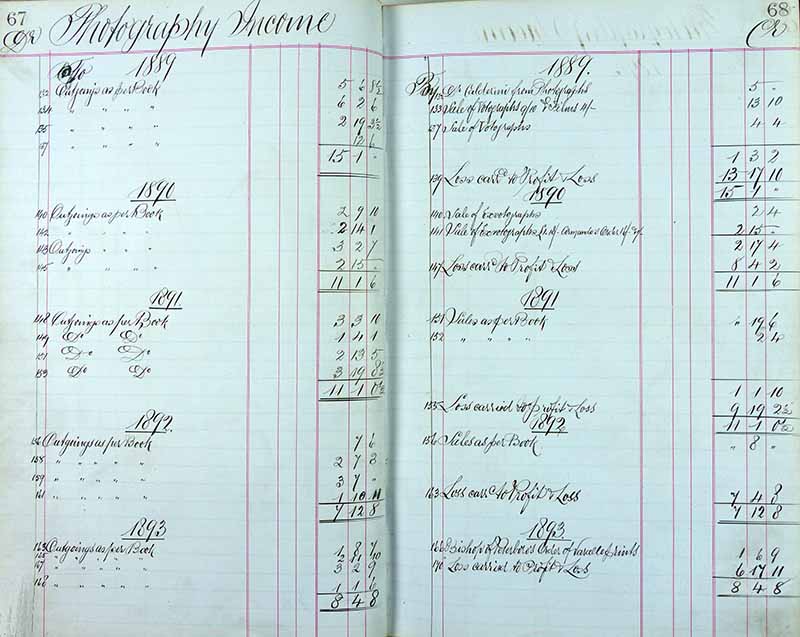 67
Dr Photography Income
To 1889
132 Outgoings as per Book 5 6 8½
134 " " " " 6 2 6
135 " " " " 2 19 3½
137 " " " " 12 6
15 1 "
1890
140 Outgoings as per Book 2 9 10
142 " " " 2 14 1
143 Outgoings " " 3 2 7
145 " " " " 2 15 "
11 1 6
1891
148 Outgoings as per Book 3 3 10
149 Do Do 1 4 1
151 Do Do 2 13 5
153 Do Do 3 19 8½
11 1 0½
1892
156 Outgoings as per Book 7 6
158 " " " " 2 7 3
159 " " " " 3 7 "
161 " " " " 1 10 11
7 12 8
1893
163 Outgoings as per Book
" " " "
" " " " 3 2 9
168 " " " " 1 1 6
8 4 8
68
Cr
1889.
from Photographs 5 "
133 Sale of 13 10
137 Sale of 4 4
1 3 2
139 Loss carrd to Profit & Loss 13 17 10
15 1 "
1890
140 Sale of 2 4
141 Sale of 2 15 "
2 17 4
147 Loss carrd to Profit & Loss 8 4 2
11 1 6
1891
151 Sales as per Book " 19 6
152 " " " " 2 4
1 1 10
155 Loss carried to Profit & Loss 9 19 2½
11 1 0½
1892
156 Sales as per Book " 8 "
163 Loss carrd to Profit & Loss 7 4 8
7 12 8
1893
Bishop of Order of prints 1 6 9
170 Loss carried to Profit & Loss 6 17 11
8 4 8